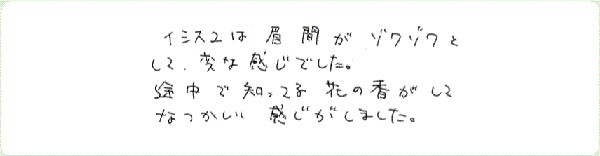 イシス2は眉間がゾクゾクと
して、変な感じでした。
途中で知ってる花の香がして
なつかしい感じがしました。